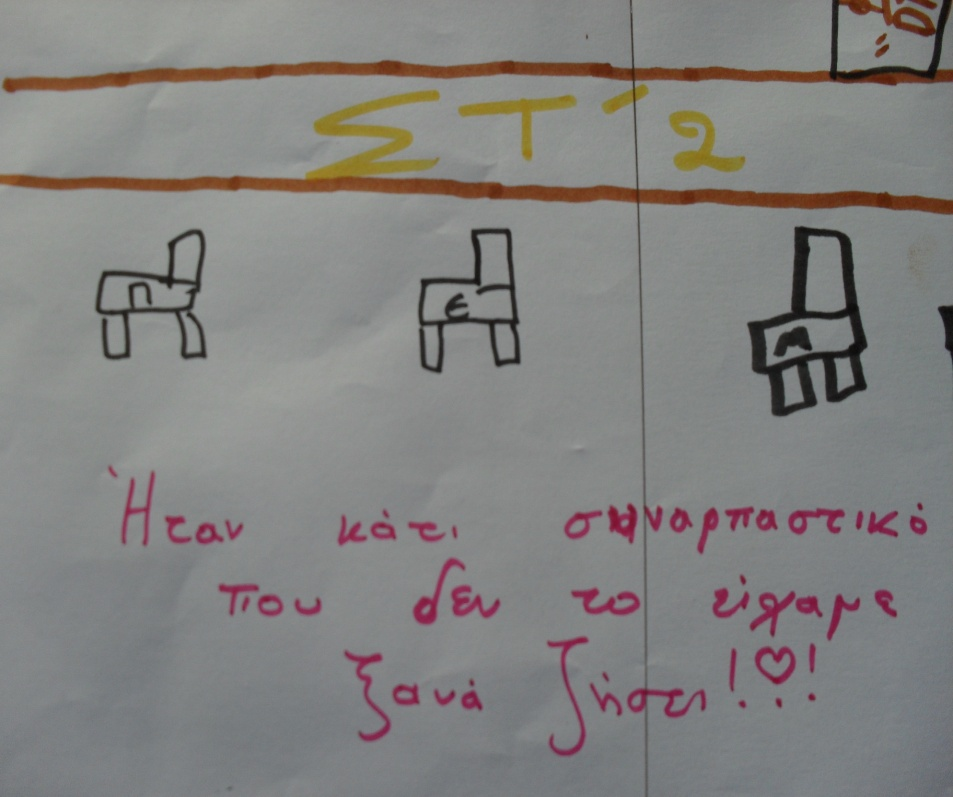 ΣΤ΄2
Π Ε Μ
Ήταν κάτι συναρπαστικό
που δεν το είχαμε
ξανά ζήσει!♡!